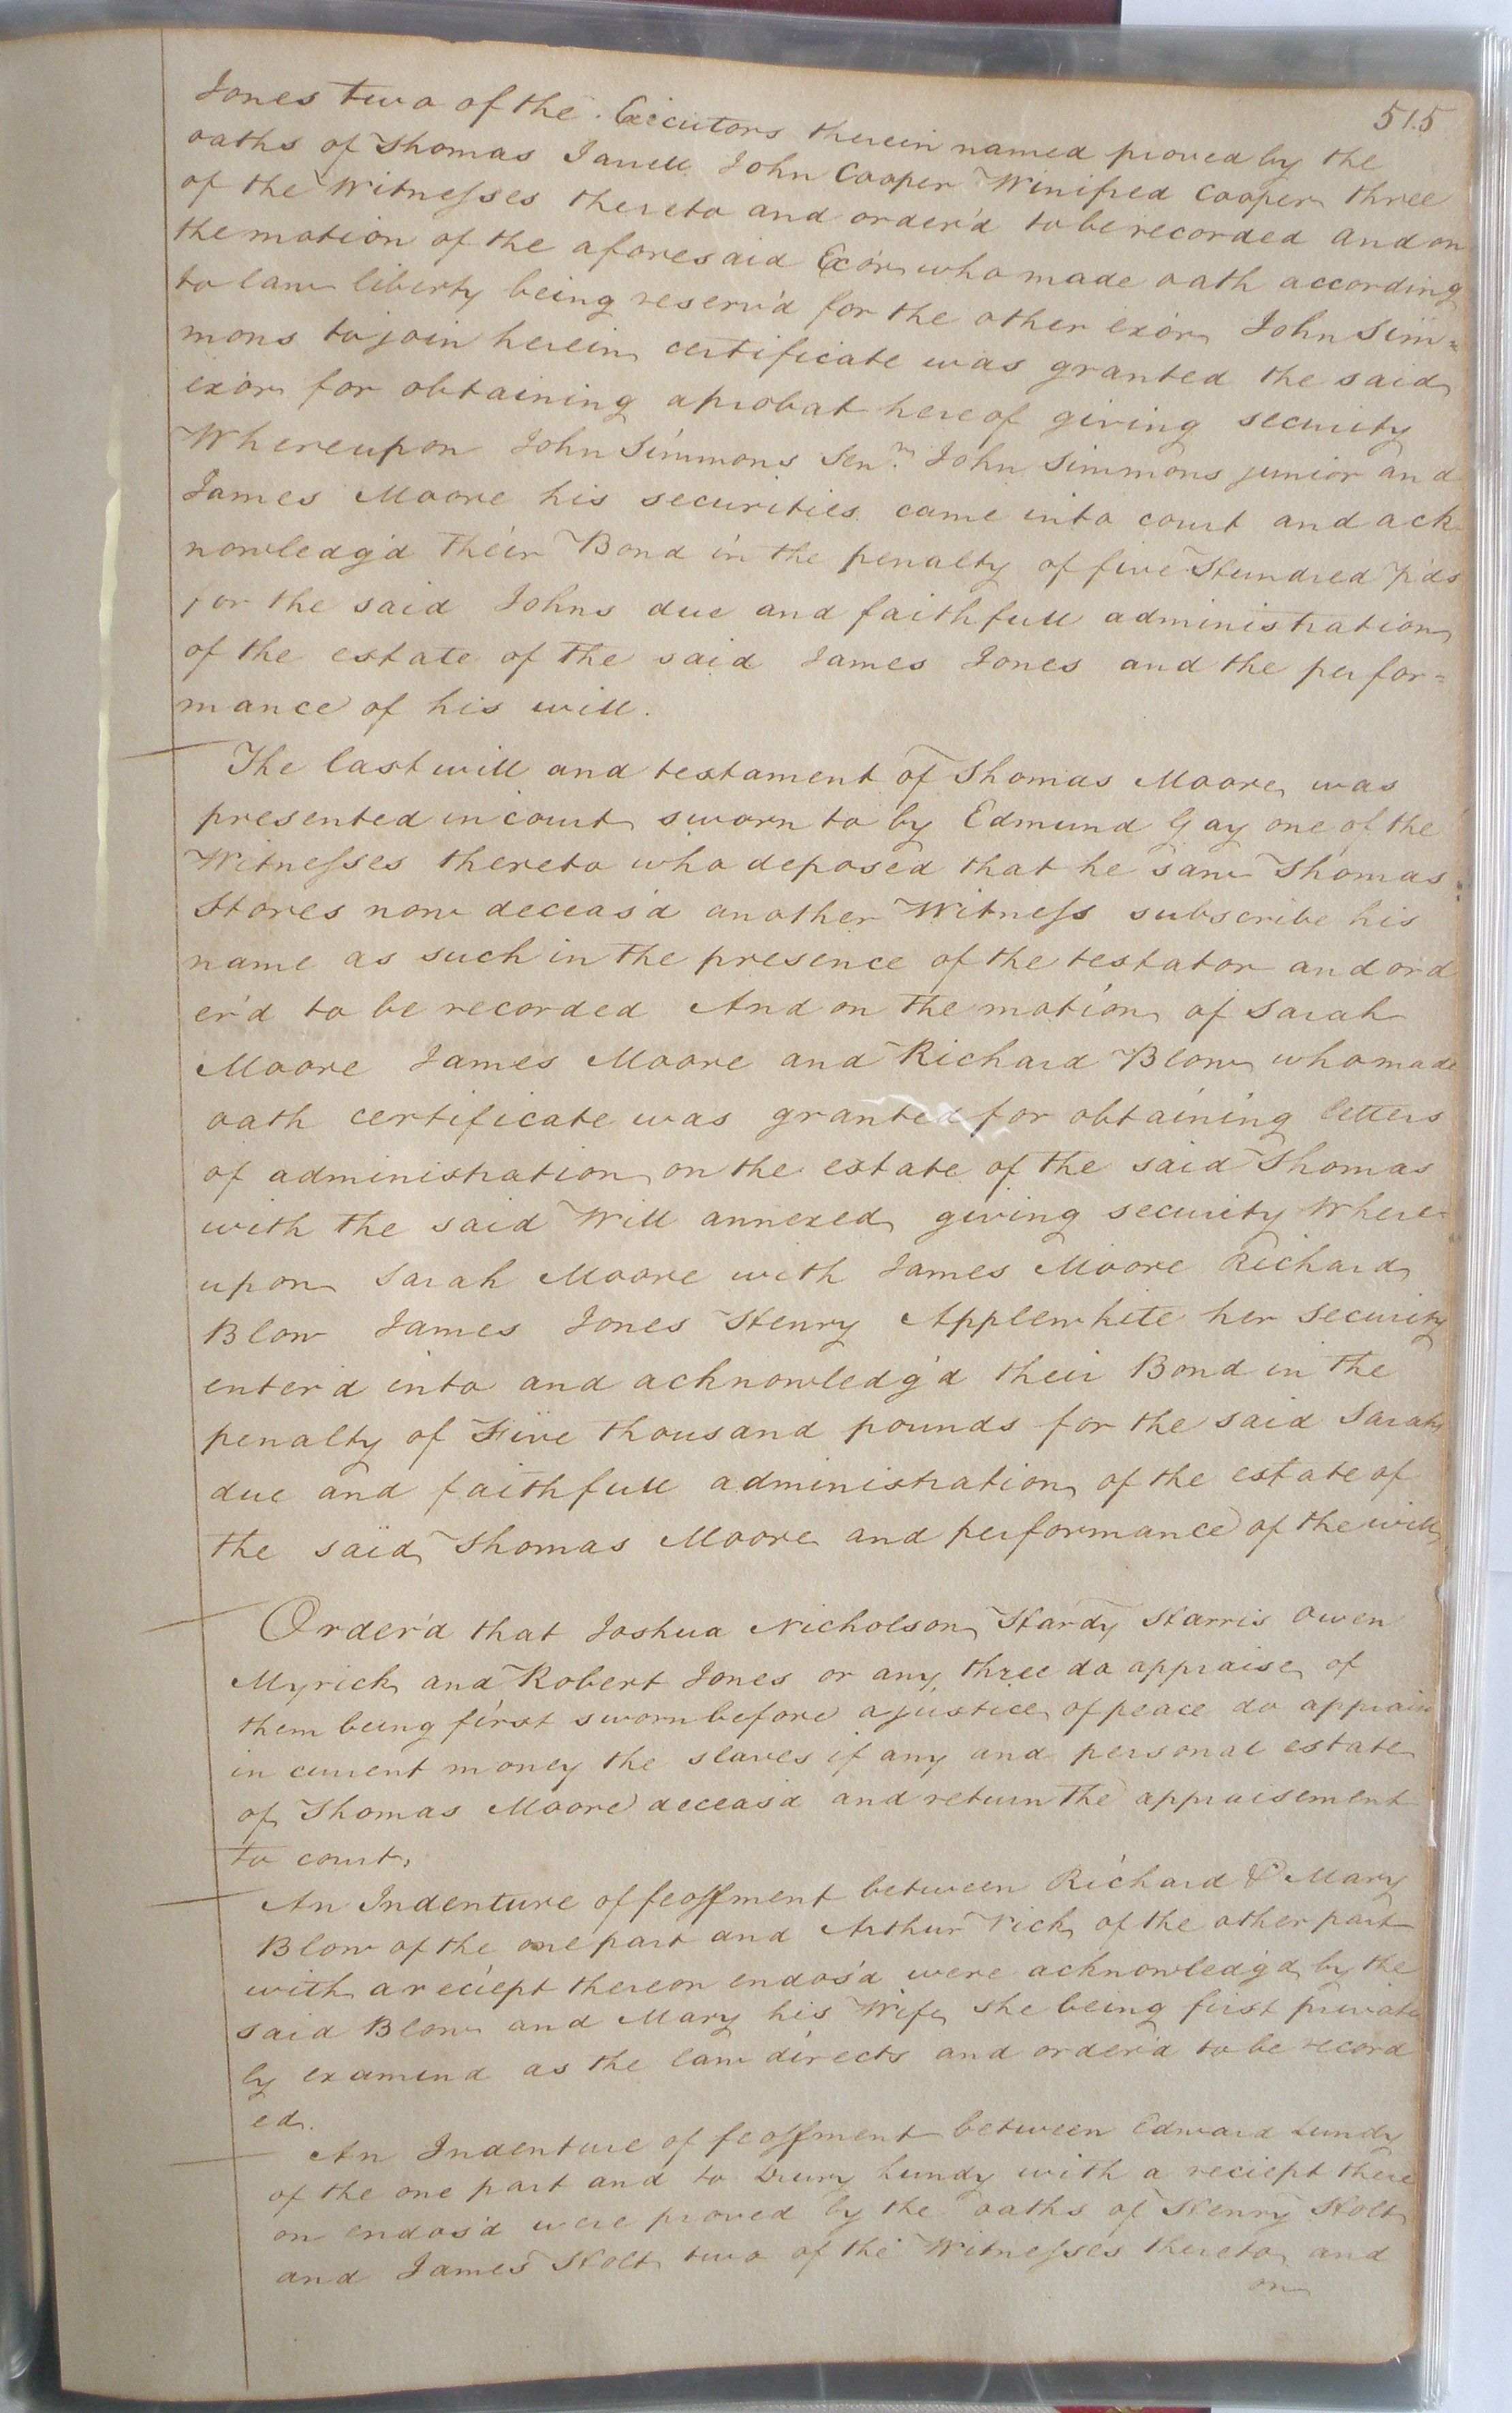 515
Jones two of the Executors therein named proved by the
oaths of Thomas Jarrell John Cooper Winifred Cooper three
of the Witnesses thereto and order'd to be recorded and on
the motion of the aforesaid Exor's who made oath according
to law liberty being reserv'd for the other exor John Sim=
mons to join herein certificate was granted the said
exors for obtaining a probat hereof giving security
Whereupon John Simmons Senr. John Simmons junior and
James Moore his securities came into court and ack
nowledg'd their Bond in the penalty of five Hundred p'ds
for the said Johns due and faithfull administration
of the estate of the said James Jones and the perfor=
mance of his will.
The last will and testament of Thomas Moore was
presented in court sworn to by Edmund Gay one of the
Witnesses thereto who deposed that he saw Thomas
Stores now deceas'd another Witness subscribe his
name as such in the presence of the testator and ord
er'd to be recorded And on the motion of Sarah
Moore James Moore and Richard Blow who made
oath certificate was granted for obtaining letters
of administration on the estate of the said Thomas
with the said Will annexed giving security Where=
upon Sarah Moore with James Moore Richard
Blow James Jones Henry Applewhite her security
enter'd into and acknowledg'd their Bond in the
penalty of Five thousand pounds for the said Sarahs
due and faithfull administration of the estate of
the said Thomas Moore and performance of the will
Order'd that Joshua Nicholson Hardy Harris Owen
Myrick and Robert Jones or any three do appraise of
them being first sworn before a justice of peace do appraise
in current money the slaves if any and personal estate
of Thomas Moore deceas'd and return the appraisement
to court.
An Indenture of feoffment between Richard & Mary
Blow of the one part and Arthur Vick of the other part
with a reciept thereon endos'd were acknowledg'd by the
said Blow and Mary his Wife she being first private
ly examind as the law directs and order'd to be record
ed.
An Indenture of feoffment between Edward Lundy
of the one part and to Drury Lundy with a reciept there
on endos'd were proved by the oaths of Henry Holt
and James Holt two of the Witnesses thereto and
on